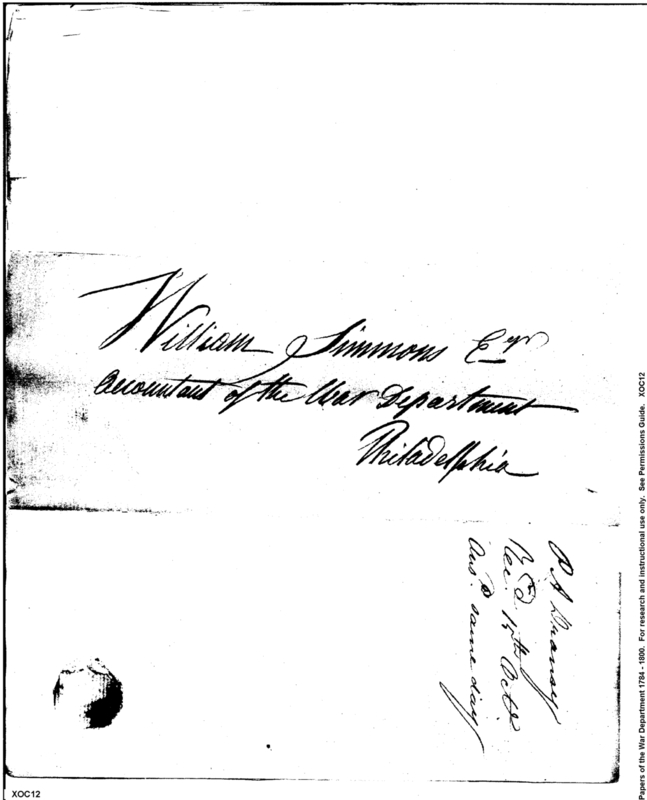 William Simmons Esqr
Accountant of the War Department
Philadelphia
P A
Rec.d 15th Octr
Ans.d same day
Papers of the War Department 1784 - 1800. For research and instructional use only. See Permissions Guide. XOC12
XOC12